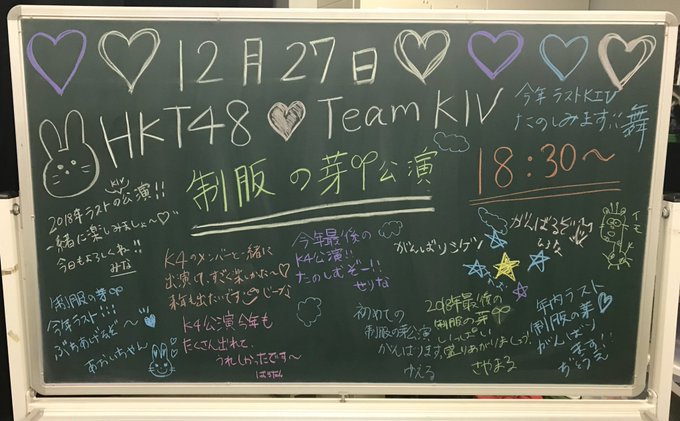 12月27日
HKT48 Team KIV
制服の芽公演
18:30～
今年ラストKIV
たのしみます!! 舞
2018年ラストのKIV公演!!
一緒に楽しみましょ〜♡
今日もよろしくね!!
みな
制服の芽
今年ラスト!!!
ぶちあげるぞ〜
あおいちゃん
K4のメンバーと一緒に
出演して、すごく楽しいな〜♡
来年も出たいです じーな
K4公演今年も
たくさん出れて、
うれしかったです〜
今年最後の
K4公演!!
たのしむぞー!!
せりな
初めての
制服の芽公演
がんばります
ゆえる
がんばりシゲン
がんばるぞ
イモ
2018年最後の
制服の芽
盛りあがりましょう
さやまる
年内ラスト
制服の芽
がんばり
ます!!